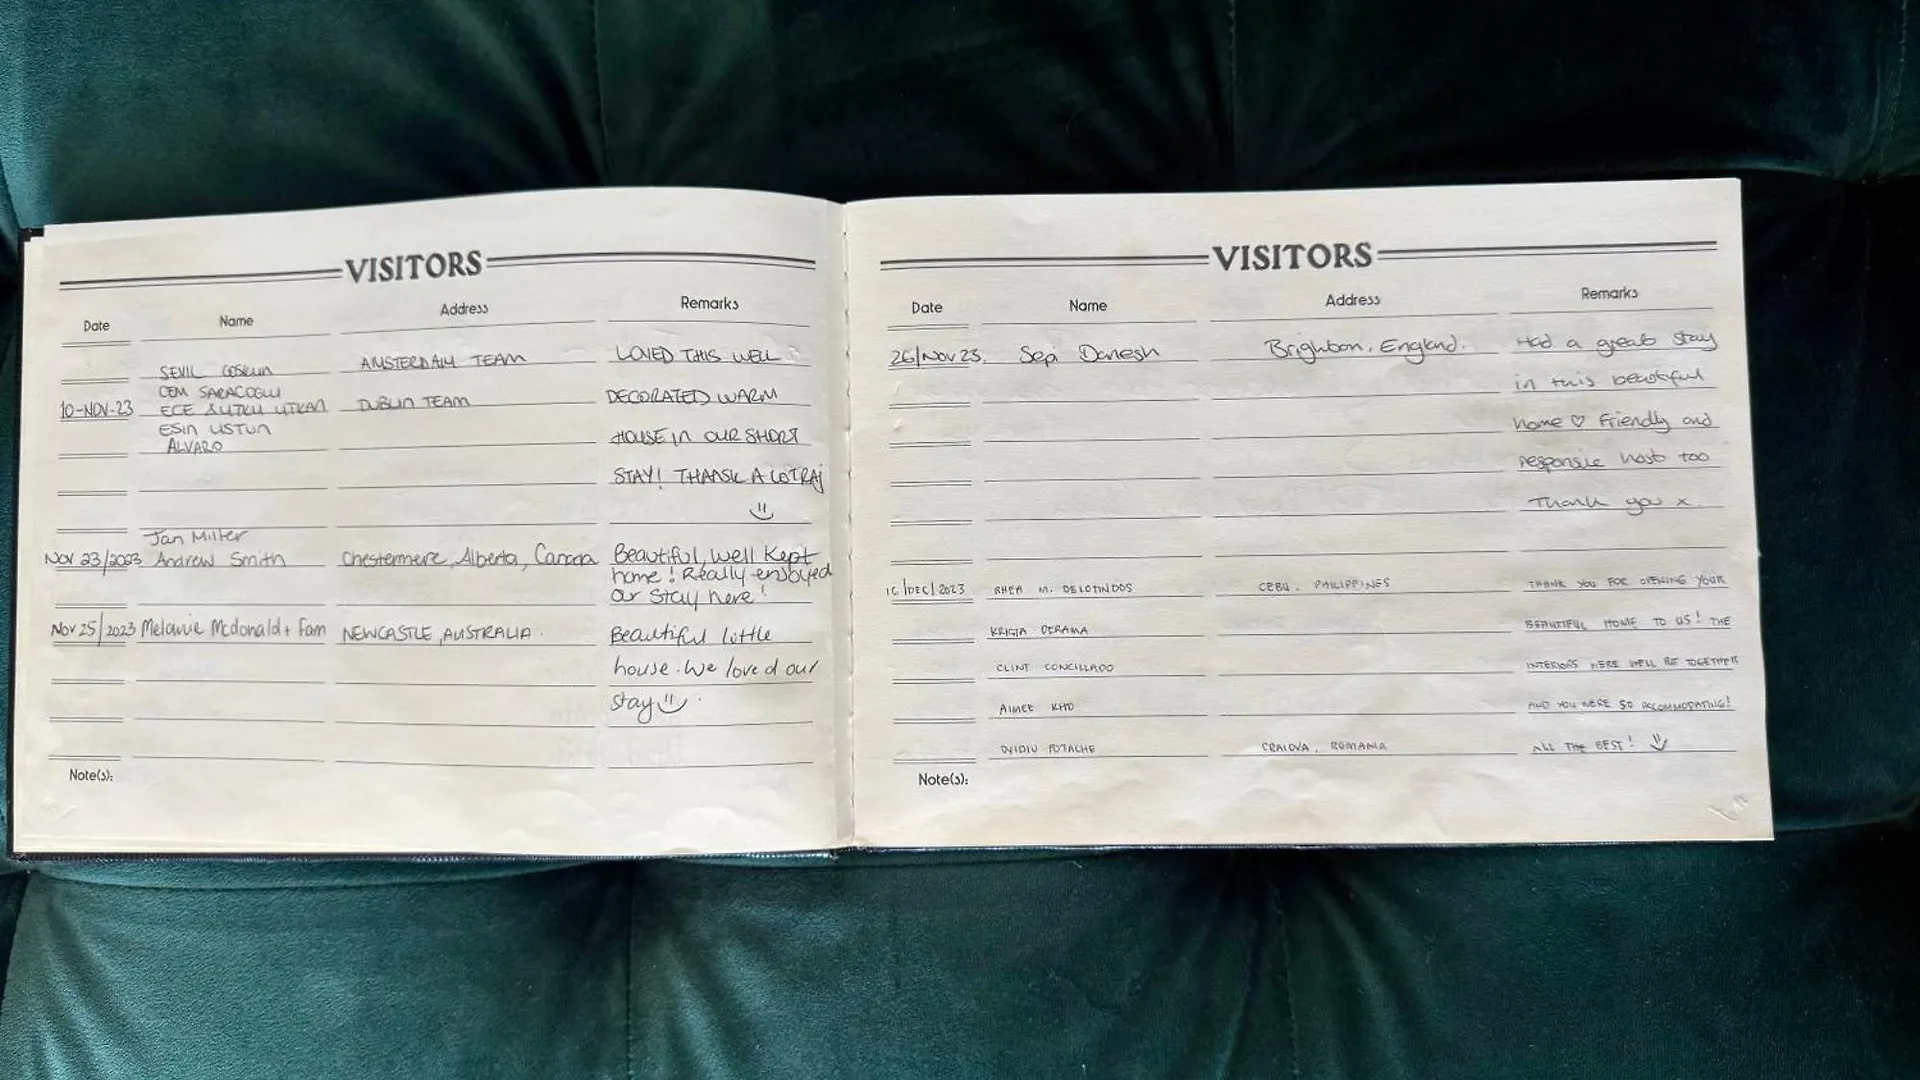 VISITORS
Date Name Address Remarks
SEVIL COSKUN AMSTERDAM TEAM LOVED THIS WELL
CEM SARACOGLU
10-NOV-23 ECE &UTKU UTKAN DUBLIN TEAM DECORATED WARM
ESIN USTUN
ALVARO HOUSE IN OUR SHORT
STAY! THANSK A LOT RAJ
Jan Miller
Nov 23/2023 Andrew Smith Chestermere, Alberta, Canada Beautiful, well kept
home! Really enjoyed
our stay here!
Nov 25/2023 Melanie Mcdonald + Fam NEWCASTLE, AUSTRALIA. Beautiful little
house. We loved our
stay
Note(s):
VISITORS
Date Name Address Remarks
26/Nov 23. Sepi Danesh Brighton, England. Had a great stay
in this beautiful
home ♡ Friendly and
responsie host too
Thank you x.
16/DEC/2023 RHEA M. DELOTINDOS CEBU, PHILIPPINES THANK YOU FOR OPENING YOUR
KRISTA DERAMA BEAUTIFUL HOME TO US! THE
CLINT CONCILLADO INTERIORS WERE WELL PUT TOGETHER
AIMEE KHO AND YOU WERE SO ACCOMMODATING!
OVIDIU POTACHE CRAIOVA, ROMANIA ALL THE BEST!
Note(s):